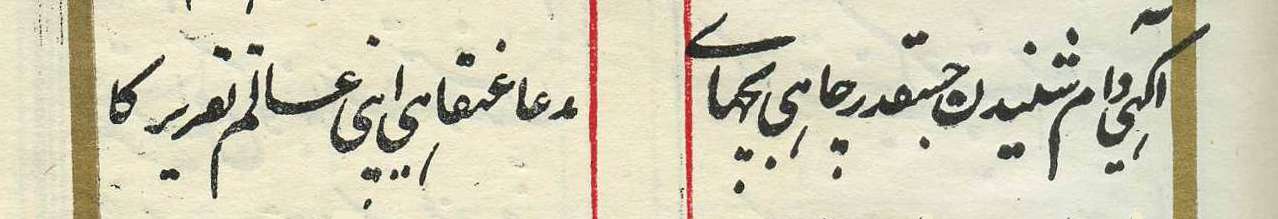 آگہی دام شنیدن جسقدر چاہی بچھاے
مدعا عنقا ہی اپنی عالم تقریر کا